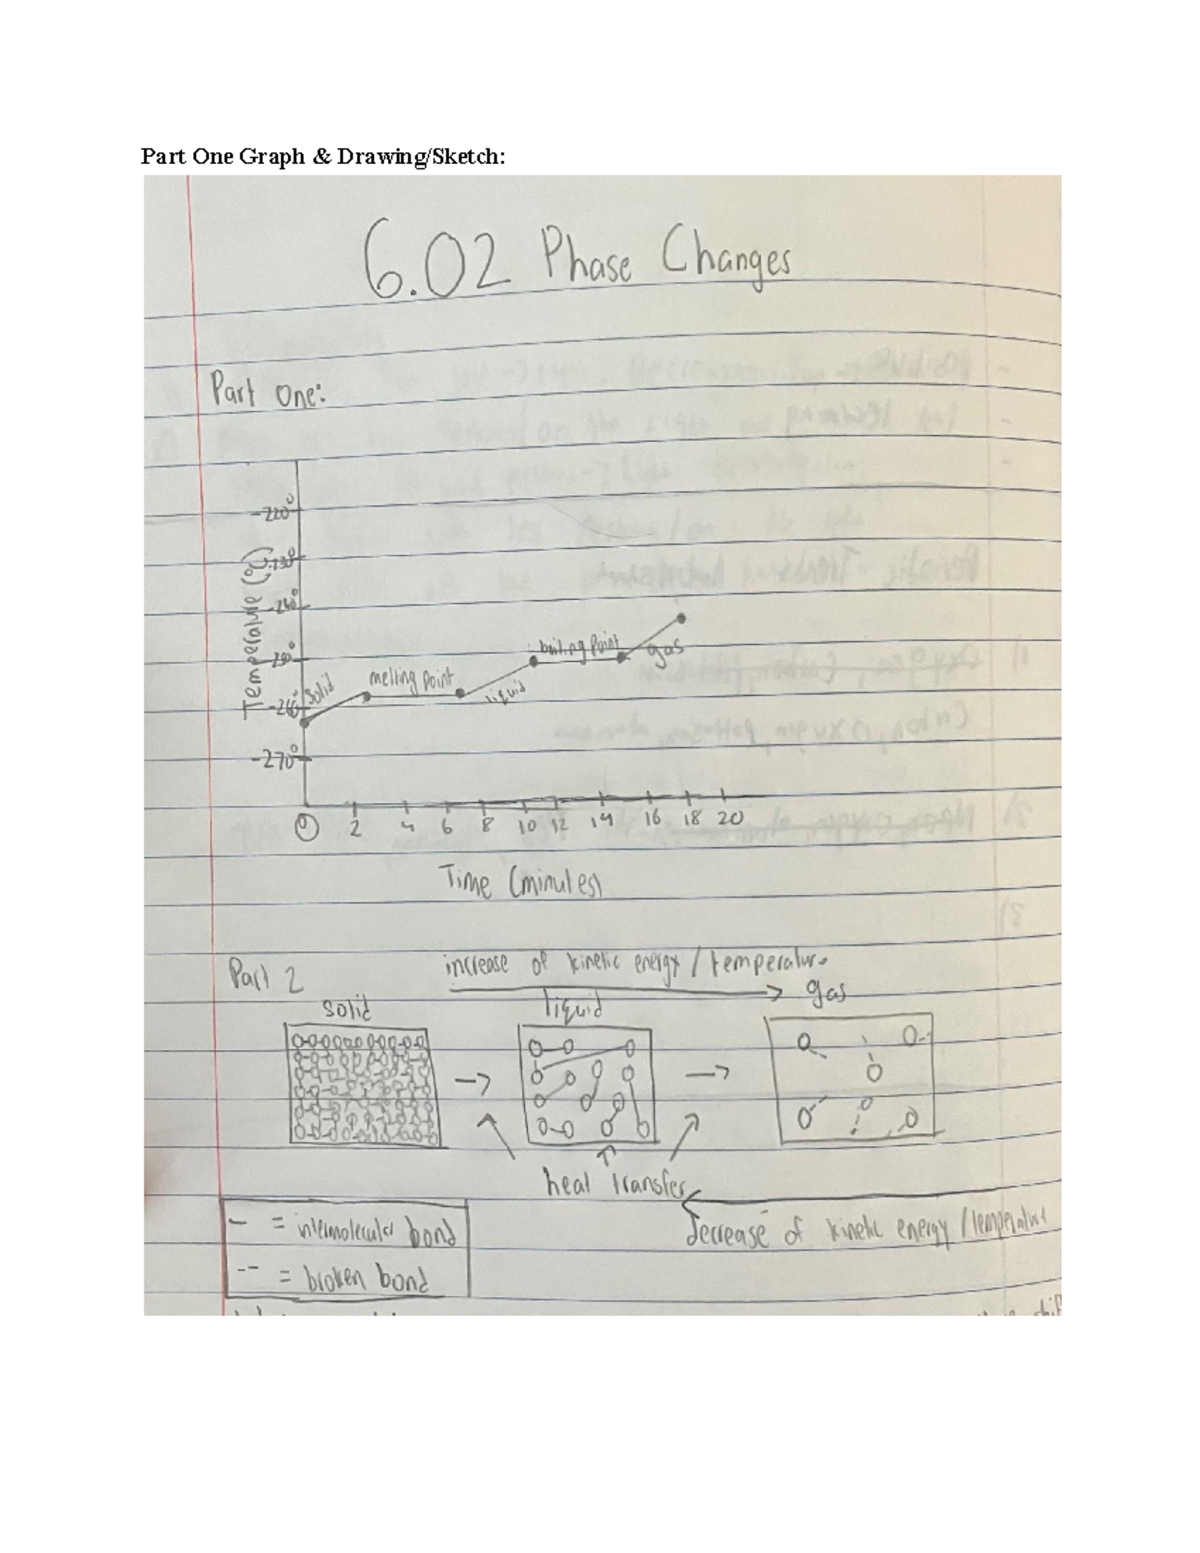 Part One Graph & Drawing/Sketch:
6.02 Phase Changes
Part One:
-220°
-240°
-260°
-270°
Temperature (°C)
solid
melting point
liquid
boiling point
gas
0 2 4 6 8 10 12 14 16 18 20
Time (minutes)
Part 2
increase of kinetic energy / temperature
solid
liquid
gas
heat transfer
decrease of kinetic energy / temperature
- = intermolecular bond
-- = broken bond